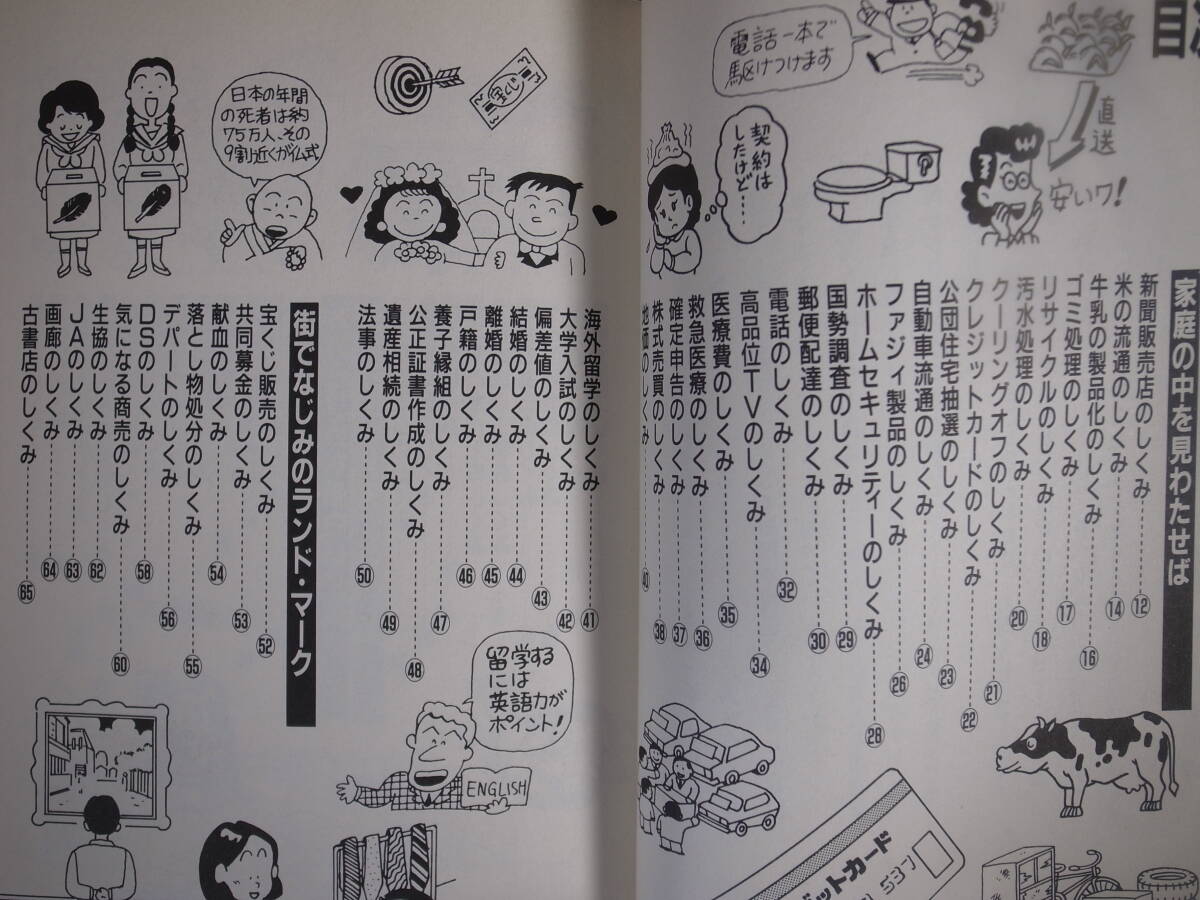 目次
電話一本で
駆けつけます
直送
安いワ!
契約は
したけど……
家庭の中を見わたせば
新聞販売店のしくみ ⑫
米の流通のしくみ ⑭
牛乳の製品化のしくみ ⑯
ゴミ処理のしくみ ⑰
リサイクルのしくみ ⑱
汚水処理のしくみ ⑳
クーリングオフのしくみ ㉑
クレジットカードのしくみ ㉒
公団住宅抽選のしくみ ㉓
自動車流通のしくみ ㉔
ファジィ製品のしくみ ㉖
ホームセキュリティーのしくみ ㉘
国勢調査のしくみ ㉙
郵便配達のしくみ ㉚
電話のしくみ ㉜
高品位TVのしくみ ㉞
医療費のしくみ ㉟
救急医療のしくみ ㊱
確定申告のしくみ ㊲
株式売買のしくみ ㊳
地価のしくみ ㊵
ットカード
537
海外留学のしくみ ㊶
大学入試のしくみ ㊷
偏差値のしくみ ㊸
結婚のしくみ ㊹
離婚のしくみ ㊺
戸籍のしくみ ㊻
養子縁組のしくみ ㊼
公正証書作成のしくみ ㊽
遺産相続のしくみ ㊾
法事のしくみ ㊿
宝くじ
日本の年間
の死者は約
75万人、その
9割近くが仏式
留学する
には
英語力が
ポイント!
ENGLISH
街でなじみのランド・マーク
宝くじ販売のしくみ 52
共同募金のしくみ 53
献血のしくみ 54
落とし物処分のしくみ 55
デパートのしくみ 56
DSのしくみ 58
気になる商売のしくみ 60
生協のしくみ 62
JAのしくみ 63
画廊のしくみ 64
古書店のしくみ 65